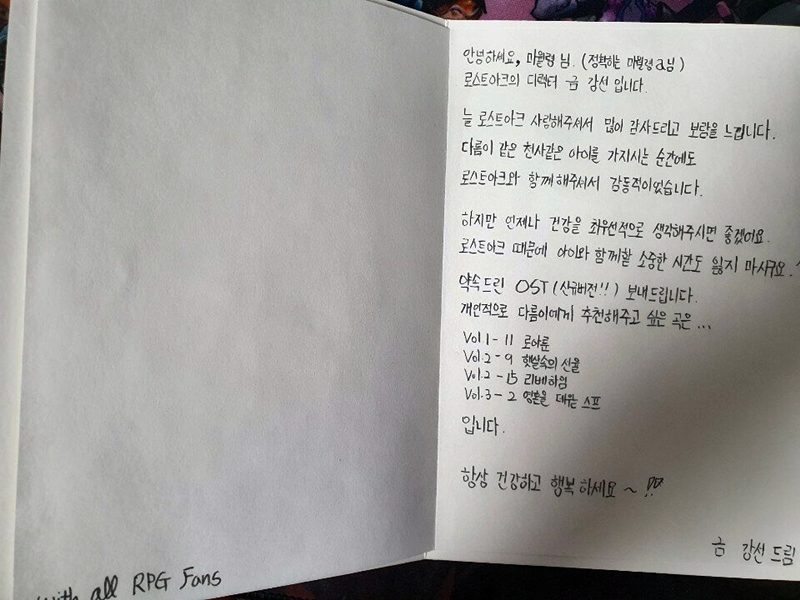 with all RPG Fans
안녕하세요, 마월령 님. (정확히는 마월령a님)
로스트아크의 디렉터 금 강선 입니다.
늘 로스트아크 사랑해주셔서 많이 감사드리고 보람을 느낍니다.
다름이 같은 천사같은 아이를 가지시는 순간에도
로스트아크와 함께해주셔서 감동적이었습니다.
하지만 언제나 건강을 최우선적으로 생각해주시면 좋겠어요.
로스트아크 때문에 아이와 함께할 소중한 시간도 잃지 마시구요.
약속드린 OST(신규버전!!) 보내드립니다.
개인적으로 다름이에게 추천해주고 싶은 곡은...
Vol.1 - 11 로아룬
Vol.2 - 9 햇살속의 선율
Vol.2 - 15 리베하임
Vol.3 - 2 영혼을 데워줄 스프
입니다.
항상 건강하고 행복하세요 ~ !!
금 강선 드림